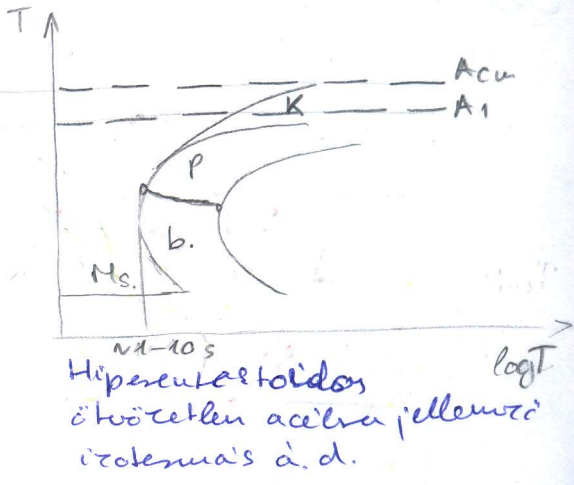 T
Acm
K
A1
P
b.
Ms.
~1-10 s
logT
Hipereutektoidos
ötvözetlen acélra jellemző
izotermás á.d.